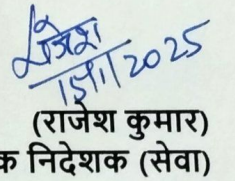 राजेश
15/1/2025
(राजेश कुमार)
क निदेशक (सेवा)